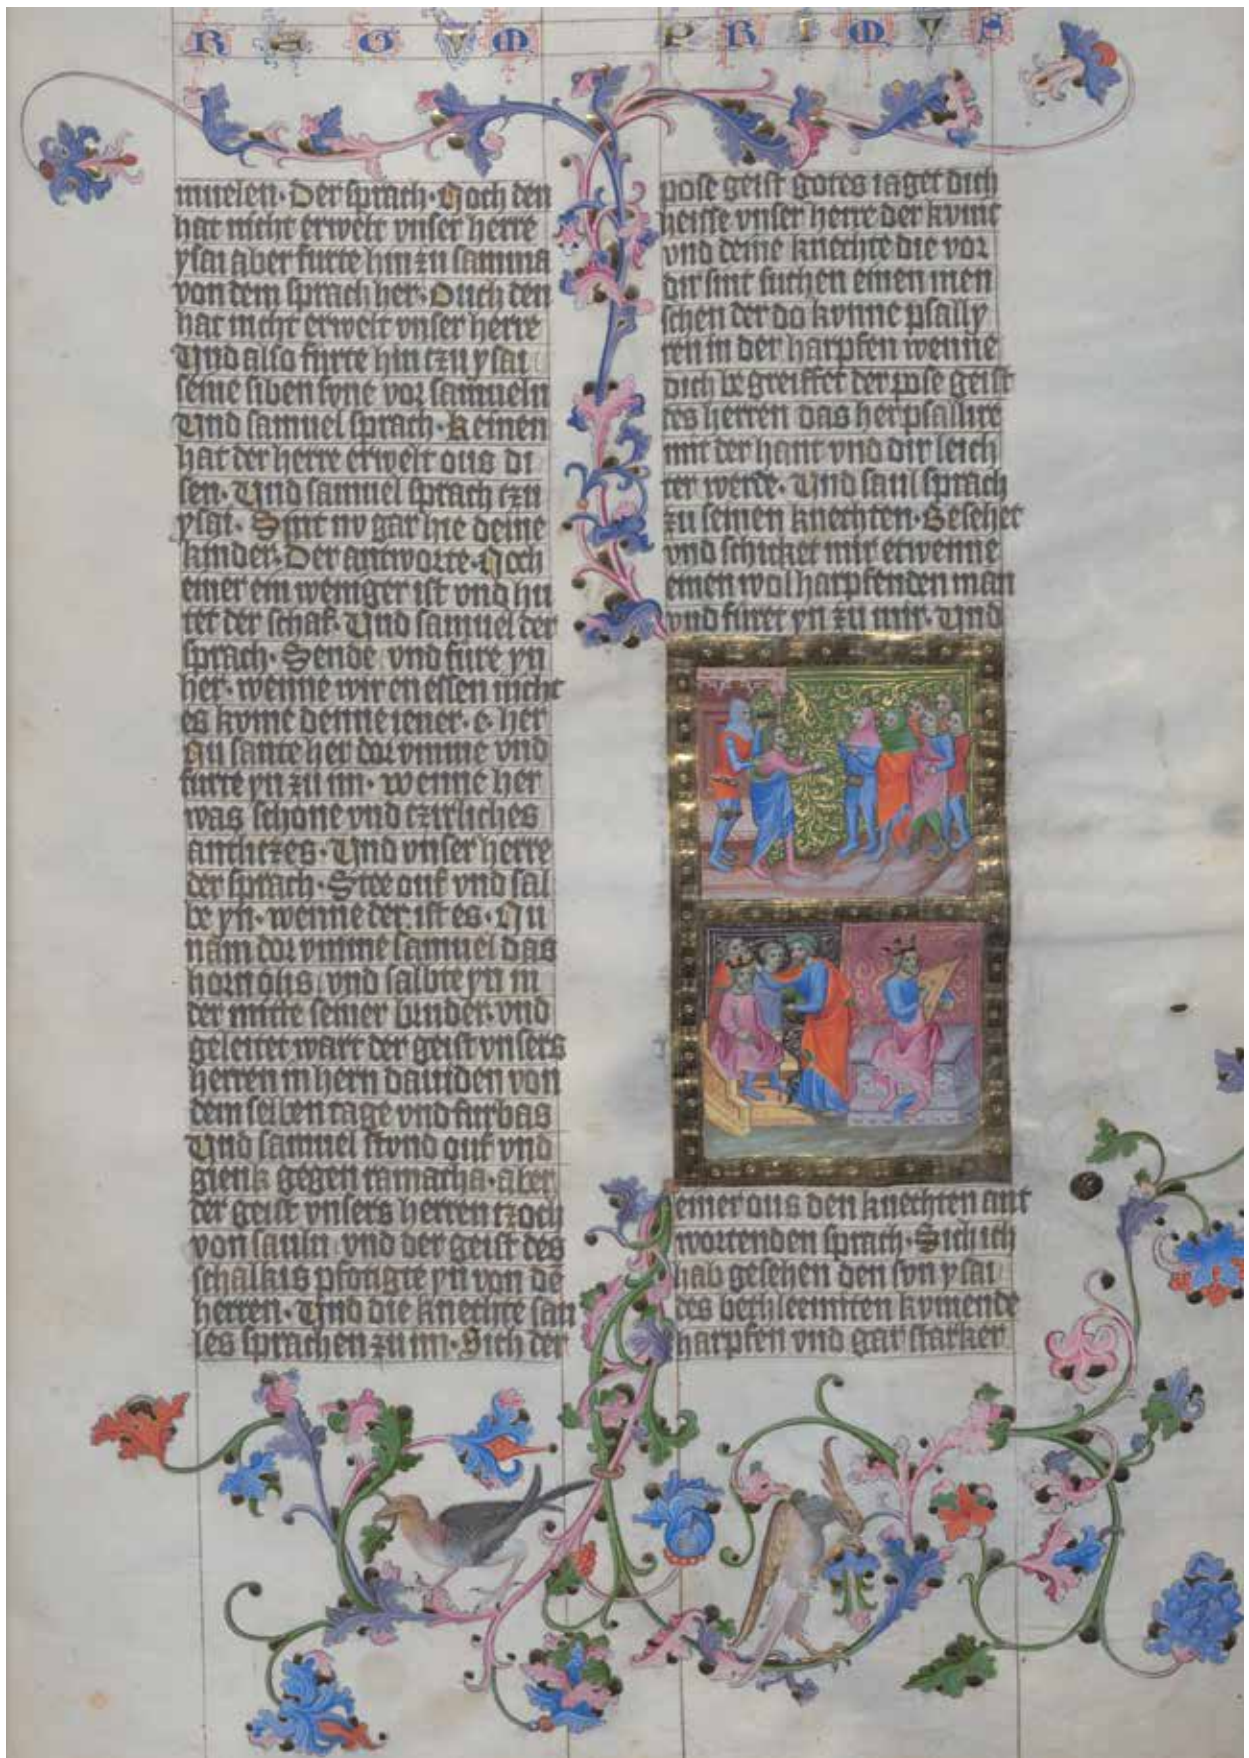 RAGVM PRIMVS
muelen· Der sprach· Noch den
hat nicht erwelt vnser herre
ysai aber furte hin zu samma
von dem sprach her· Ouch den
hat nicht erwelt vnser herre
Und also furte hin tzu ysai
seine siben syne vor samueln
Und samuel sprach· Keinen
hat der herre erwelt ous di
sen· Und samuel sprach tzu
ysai· Sint nv gar hie deine
kinder· Der antworte· Noch
einer ein weniger ist vnd hu
tet der schaf· Und samuel der
sprach· Sende vnd fure yn
her· wenne wir en essen nicht
es kvme denne iener· e· her
Nu sante her dor vmme vnd
furte yn zu im· wenne her
was schone vnd tzirliches
antlitzes· Und vnser herre
der sprach· Stee ouf vnd sal
be yn· wenne der ist es· Nu
nam dor vmme samuel das
horn olis vnd salbte yn in
der mitte seiner bruder· vnd
geleitet wart der geist vnsers
herren in hern dauiden von
dem selben tage vnd furbas
Und samuel stvnd ouf vnd
gienk gegen ramatha· aber
der geist vnsers herren tzoch
von sauln vnd der geist des
schalkis pfotigte yn von de
herren· Und die knechte sau
les sprachen zu im· Sich der
pose geist gotes iaget dich
heisse vnser herre der kvnic
vnd deine knechte die vor
dir sint suchen einen men
schen der do kvnne psally
ren in der harpfen wenne
dich begreiffet der pose geist
des herren das her psallire
mit der hant vnd dir leich
ter werde· Und saul sprach
zu seinen knechten· Besehet
vnd schicket mir etwenne
einen wol harpfenden man
vnd furet yn zu mir· Und
einer ous den knechten ant
wortenden sprach· Sich ich
hab gesehen den svn ysai
des bethleemiten kvnnende
harpfen vnd gar starker